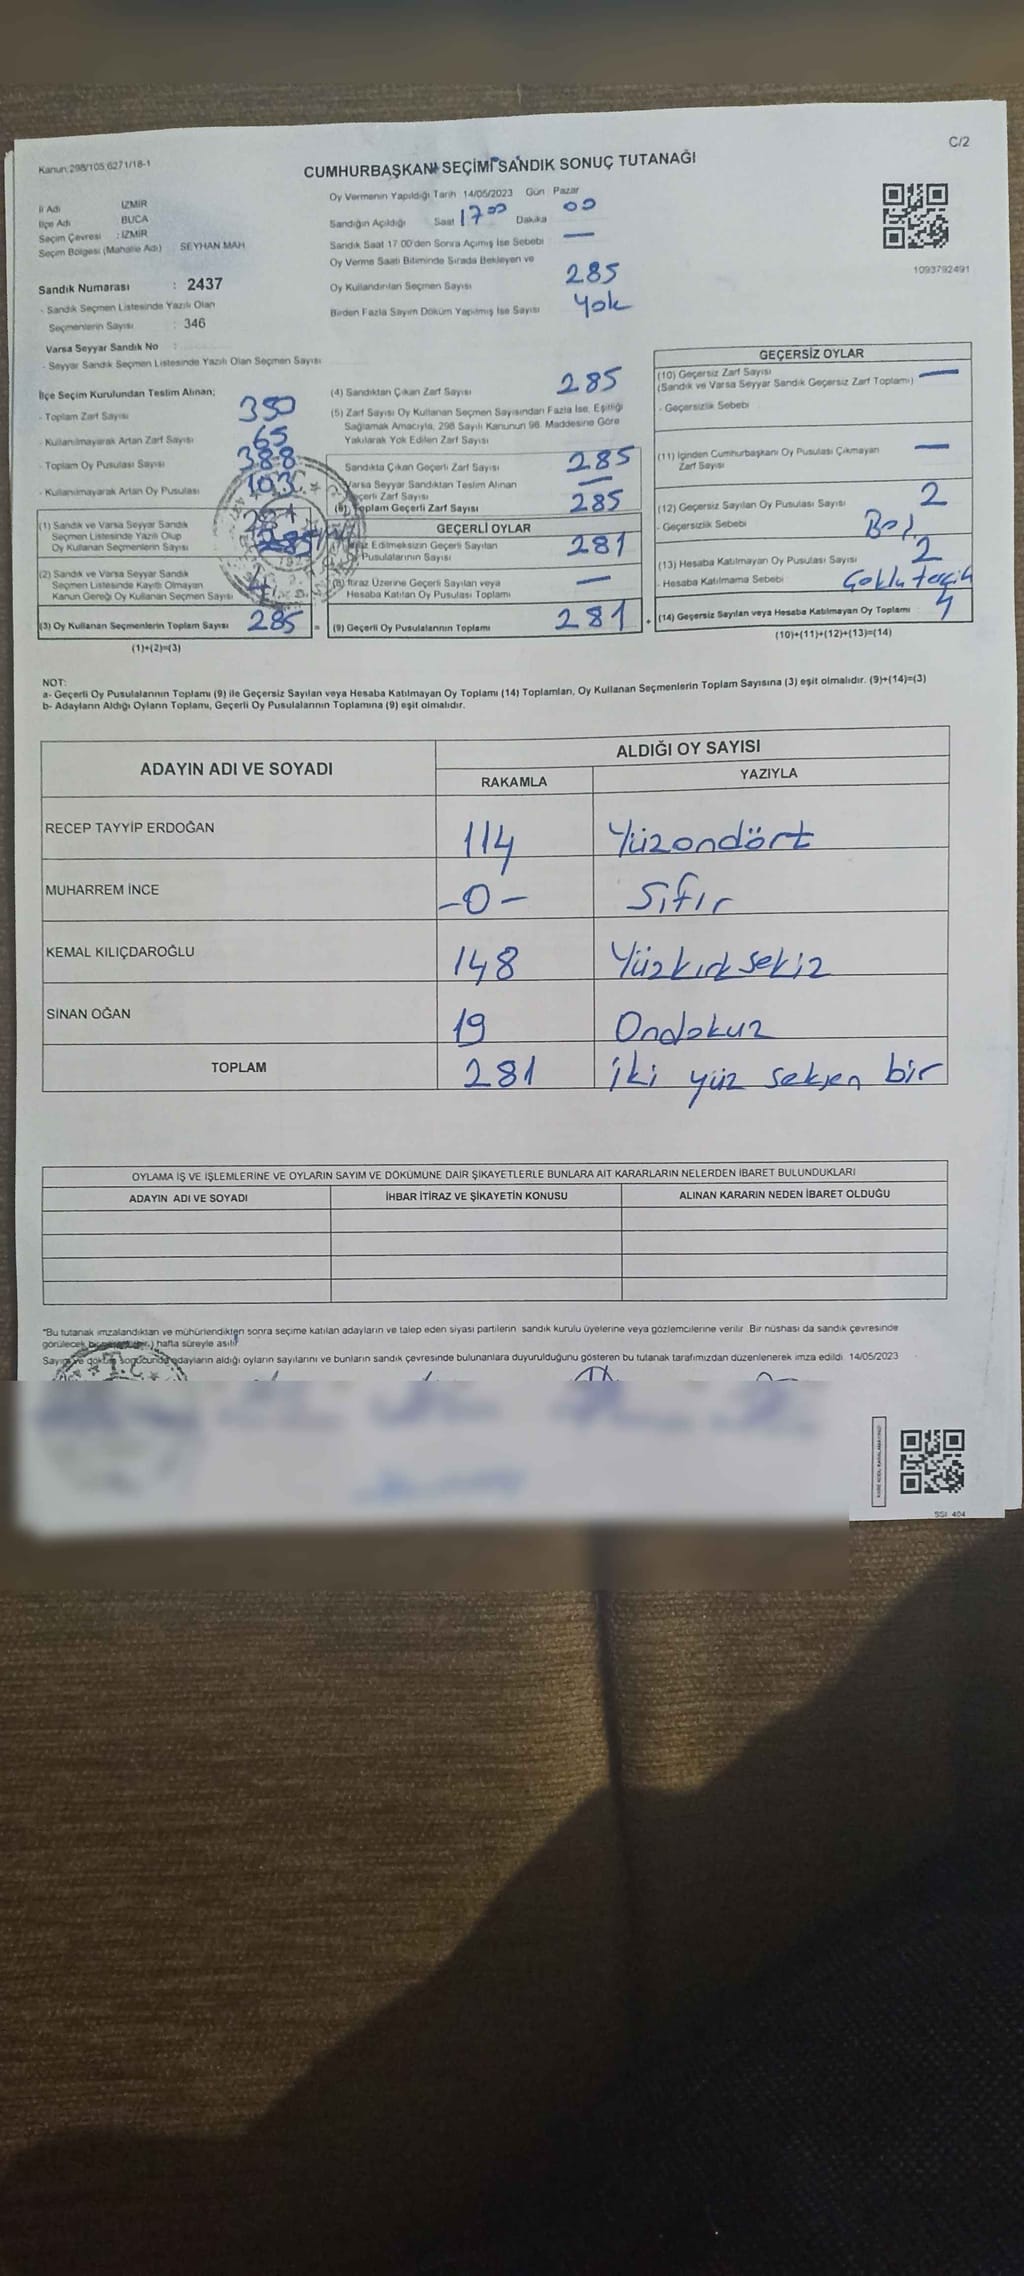 C/2
Kanun:298/105,6271/18-1
CUMHURBAŞKANI SEÇİMİ SANDIK SONUÇ TUTANAĞI
İl Adı İZMİR
İlçe Adı BUCA
Seçim Çevresi : İZMİR
Seçim Bölgesi (Mahalle Adı) SEYHAN MAH
Sandık Numarası : 2437
- Sandık Seçmen Listesinde Yazılı Olan
Seçmenlerin Sayısı : 346
Varsa Seyyar Sandık No :
- Seyyar Sandık Seçmen Listesinde Yazılı Olan Seçmen Sayısı
Oy Vermenin Yapıldığı Tarih 14/05/2023 Gün Pazar
Sandığın Açıldığı Saat 17 00 Dakika 00
Sandık Saat 17.00'den Sonra Açımış İse Sebebi —
Oy Verme Saati Bitiminde Sırada Bekleyen ve
Oy Kullandırılan Seçmen Sayısı 285
Birden Fazla Sayım Döküm Yapılmış İse Sayısı Yok
1093792491
İlçe Seçim Kurulundan Teslim Alınan;
- Toplam Zarf Sayısı 350
- Kullanılmayarak Artan Zarf Sayısı 65
- Toplam Oy Pusulası Sayısı 388
- Kullanılmayarak Artan Oy Pusulası 103
(1) Sandık ve Varsa Seyyar Sandık
Seçmen Listesinde Yazılı Olup
Oy Kullanan Seçmenlerin Sayısı
(2) Sandık ve Varsa Seyyar Sandık
Seçmen Listesinde Kayıtlı Olmayan
Kanun Gereği Oy Kullanan Seçmen Sayısı 4
(3) Oy Kullanan Seçmenlerin Toplam Sayısı 285 =
(1)+(2)=(3)
(4) Sandıktan Çıkan Zarf Sayısı 285
(5) Zarf Sayısı Oy Kullanan Seçmen Sayısından Fazla İse, Eşitliği
Sağlamak Amacıyla, 298 Sayılı Kanunun 98. Maddesine Göre
Yakılarak Yok Edilen Zarf Sayısı
Sandıkta Çıkan Geçerli Zarf Sayısı 285
Varsa Seyyar Sandıktan Teslim Alınan
Geçerli Zarf Sayısı —
(6) Toplam Geçerli Zarf Sayısı 285
GEÇERLİ OYLAR
Edilmeksizin Geçerli Sayılan
Pusulalarının Sayısı 281
(8) İtiraz Üzerine Geçerli Sayılan veya
Hesaba Katılan Oy Pusulası Toplamı —
(9) Geçerli Oy Pusulalarının Toplamı 281 +
GEÇERSİZ OYLAR
(10) Geçersiz Zarf Sayısı —
(Sandık ve Varsa Seyyar Sandık Geçersiz Zarf Toplamı)
- Geçersizlik Sebebi
(11) İçinden Cumhurbaşkanı Oy Pusulası Çıkmayan
Zarf Sayısı —
(12) Geçersiz Sayılan Oy Pusulası Sayısı 2
- Geçersizlik Sebebi Boş
(13) Hesaba Katılmayan Oy Pusulası Sayısı 2
- Hesaba Katılmama Sebebi Çoklu tercih
(14) Geçersiz Sayılan veya Hesaba Katılmayan Oy Toplamı 4
(10)+(11)+(12)+(13)=(14)
NOT:
a- Geçerli Oy Pusulalarının Toplamı (9) ile Geçersiz Sayılan veya Hesaba Katılmayan Oy Toplamı (14) Toplamları, Oy Kullanan Seçmenlerin Toplam Sayısına (3) eşit olmalıdır. (9)+(14)=(3)
b- Adayların Aldığı Oyların Toplamı, Geçerli Oy Pusulalarının Toplamına (9) eşit olmalıdır.
ADAYIN ADI VE SOYADI
ALDIĞI OY SAYISI
RAKAMLA YAZIYLA
RECEP TAYYİP ERDOĞAN 114 Yüzondört
MUHARREM İNCE -0- Sıfır
KEMAL KILIÇDAROĞLU 148 Yüzkırksekiz
SİNAN OĞAN 19 Ondokuz
TOPLAM 281 iki yüz seksen bir
OYLAMA İŞ VE İŞLEMLERİNE VE OYLARIN SAYIM VE DÖKÜMÜNE DAİR ŞİKAYETLERLE BUNLARA AİT KARARLARIN NELERDEN İBARET BULUNDUKLARI
ADAYIN ADI VE SOYADI İHBAR İTİRAZ VE ŞİKAYETİN KONUSU ALINAN KARARIN NEDEN İBARET OLDUĞU
*Bu tutanak imzalandıktan ve mühürlendikten sonra seçime katılan adayların ve talep eden siyasi partilerin sandık kurulu üyelerine veya gözlemcilerine verilir. Bir nüshası da sandık çevresinde
görülecek bir yere (bir) hafta süreyle asılır
Sayım ve döküm sonucunda adayların aldığı oyların sayılarını ve bunların sandık çevresinde bulunanlara duyurulduğunu gösteren bu tutanak tarafımızdan düzenlenerek imza edildi. 14/05/2023
SSİ 404